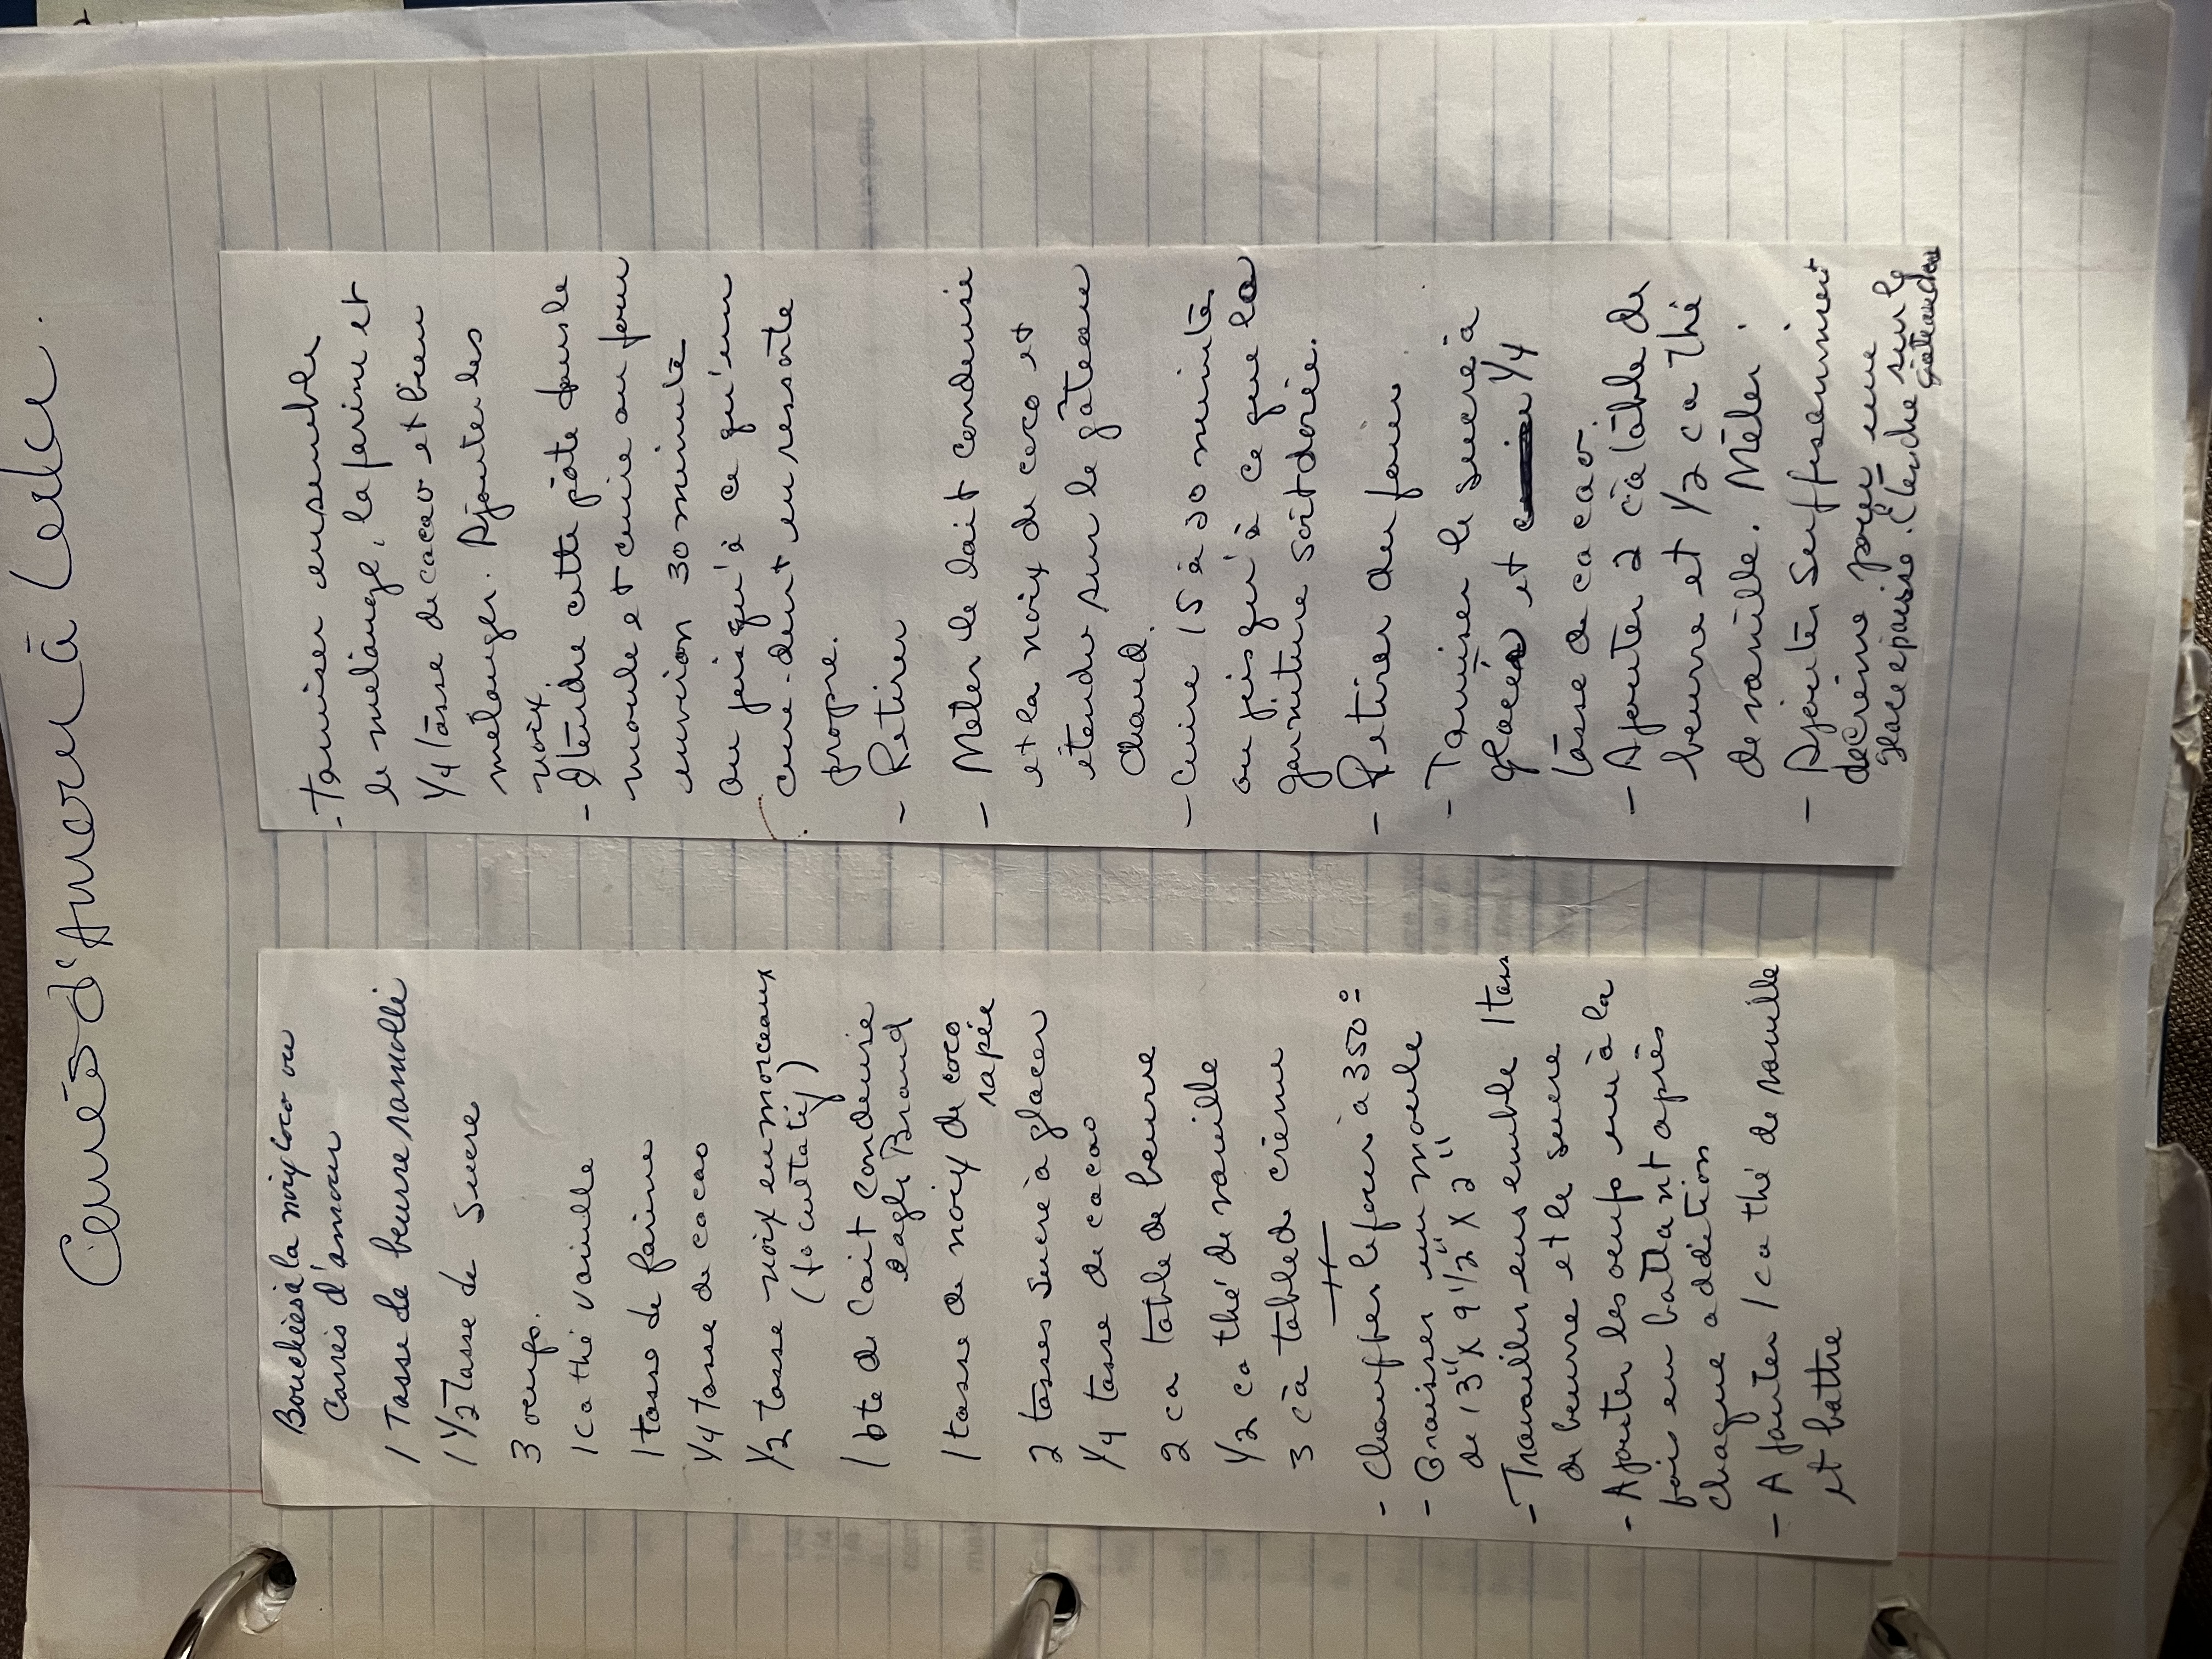 Carrés d'Amour à Lake.
Bouchées à la noix coco ou
Carrés d'amour
1 Tasse de beurre ramolli
1 1/2 Tasse de Sucre
3 oeufs.
1 c a thé vanille
1 tasse de farine
1/4 tasse de cacao
1/2 tasse noix en morceaux
(facultatif)
1 bte de lait condensé
eagle Brand
1 tasse de noix de coco
rapée
2 tasses sucre à glacer
1/4 tasse de cacao
2 c a table de beurre
1/2 c a thé de vanille
3 c à table de crème
- Chauffer le four à 350°
- Graisser un moule
de 13" x 9 1/2" x 2"
- Travailler ensemble 1 tass
de beurre et le sucre
- Ajouter les oeufs un à la
fois en battant après
chaque addition
- Ajouter 1 c a thé de vanille
et battre
- tamiser ensemble
le mélange, la farine et
1/4 tasse de cacao et bien
mélanger. Ajouter les
noix.
- Etendre cette pâte dans le
moule et cuire au four
environ 30 minute
ou jusqu'à ce qu'un
cure-dent en ressorte
propre.
- Retirer
- Mêler le lait condensé
et la noix de coco et
étendre sur le gâteau
chaud.
- cuire 15 à 30 minute
ou jusqu'à ce que la
garniture soit dorée.
- Retirer du four
- Tamiser le sucre à
glacer et 1/4
tasse de cacao.
- Ajouter 2 c à table de
beurre et 1/2 c a thé
de vanille. Mêler.
- Ajouter Suffisamment
de crème pour une
glace épaisse. Etendre sur le
gâteau